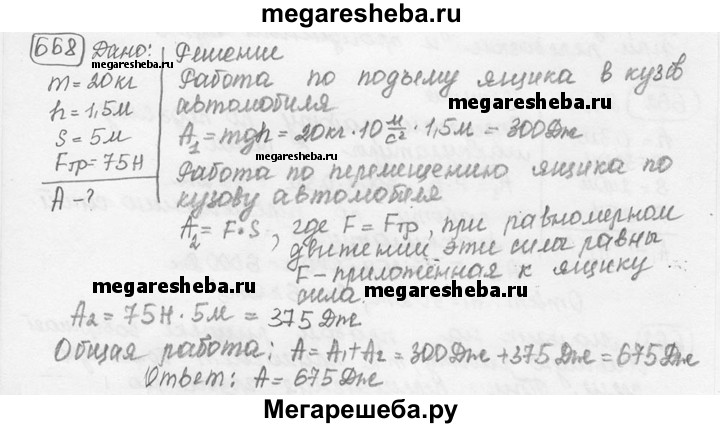 megaresheba.ru
668 Дано:
megaresheba.ru
m = 20 кг
h = 1,5 м
S = 5 м
Fтр = 75 Н
A - ?
Решение
Работа по подъему ящика в кузов
автомобиля
megaresheba.ru
A₁ = mgh = 20 кг · 10 м/с² · 1,5 м = 300 Дж
megaresheba.ru
Работа по перемещению ящика по
кузову автомобиля
A₂ = F · S, где F = Fтр, при равномерном
движении эти сила равны
F - приложённая к ящику
сила.
megaresheba.ru
A₂ = 75 Н · 5 м = 375 Дж
Общая работа: A = A₁ + A₂ = 300 Дж + 375 Дж = 675 Дж
Ответ: A = 675 Дж
Мегарешеба.ру